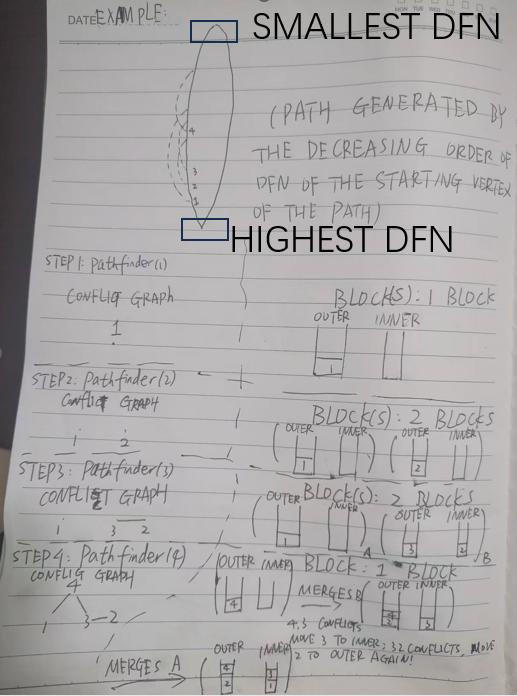 DATE EXAMPLE:
MON TUE WED THU
SMALLEST DFN
4
3
2
1
(PATH GENERATED BY
THE DECREASING ORDER OF
DFN OF THE STARTING VERTEX
OF THE PATH)
HIGHEST DFN
STEP 1: Pathfinder(1)
CONFLICT GRAPH
1
BLOCK(S): 1 BLOCK
OUTER INNER
1
STEP2: Pathfinder(2)
CONFLICT GRAPH
1 2
BLOCK(S): 2 BLOCKS
OUTER INNER OUTER INNER
1 2
STEP3: Pathfinder(3)
CONFLICT GRAPH
1 3 2
BLOCK(S): 2 BLOCKS
OUTER INNER OUTER INNER
1 A 3 2 B
STEP4: Pathfinder(4)
CONFLIG GRAPH
4
1 3-2
BLOCK: 1 BLOCK
OUTER INNER OUTER INNER
4 MERGES B 4 2 3
4,3 CONFLICTS
MOVE 3 TO INNER; 32 CONFLICTS, MOVE
2 TO OUTER AGAIN!
MERGES A
OUTER INNER
4 3
2 1